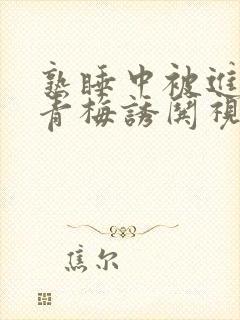 熟睡中被進
青梅誘関視
焦尔